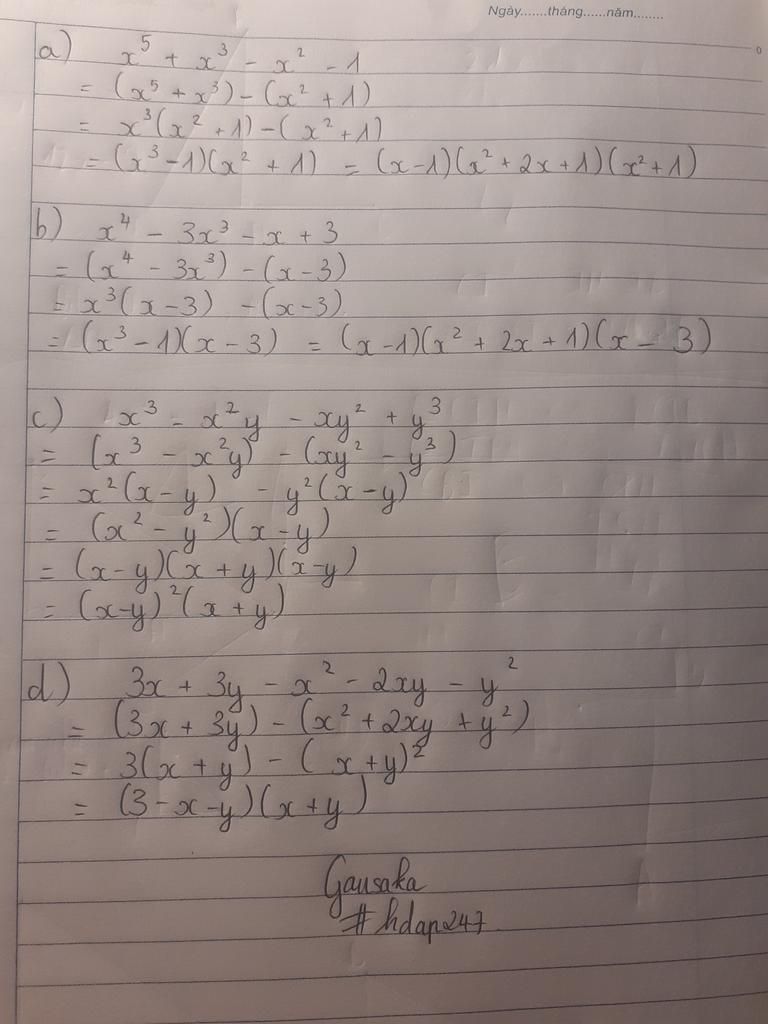 Ngày.......tháng......năm........
a) x⁵ + x³ - x² - 1
= (x⁵ + x³) - (x² + 1)
= x³(x² + 1) - (x² + 1)
= (x³ - 1)(x² + 1) = (x - 1)(x² + 2x + 1)(x² + 1)
b) x⁴ - 3x³ - x + 3
= (x⁴ - 3x³) - (x - 3)
= x³(x - 3) - (x - 3)
= (x³ - 1)(x - 3) = (x - 1)(x² + 2x + 1)(x - 3)
c) x³ - x²y - xy² + y³
= (x³ - x²y) - (xy² - y³)
= x²(x - y) - y²(x - y)
= (x² - y²)(x - y)
= (x - y)(x + y)(x - y)
= (x - y)²(x + y)
d) 3x + 3y - x² - 2xy - y²
= (3x + 3y) - (x² + 2xy + y²)
= 3(x + y) - (x + y)²
= (3 - x - y)(x + y)
Gausaka
#hdap247